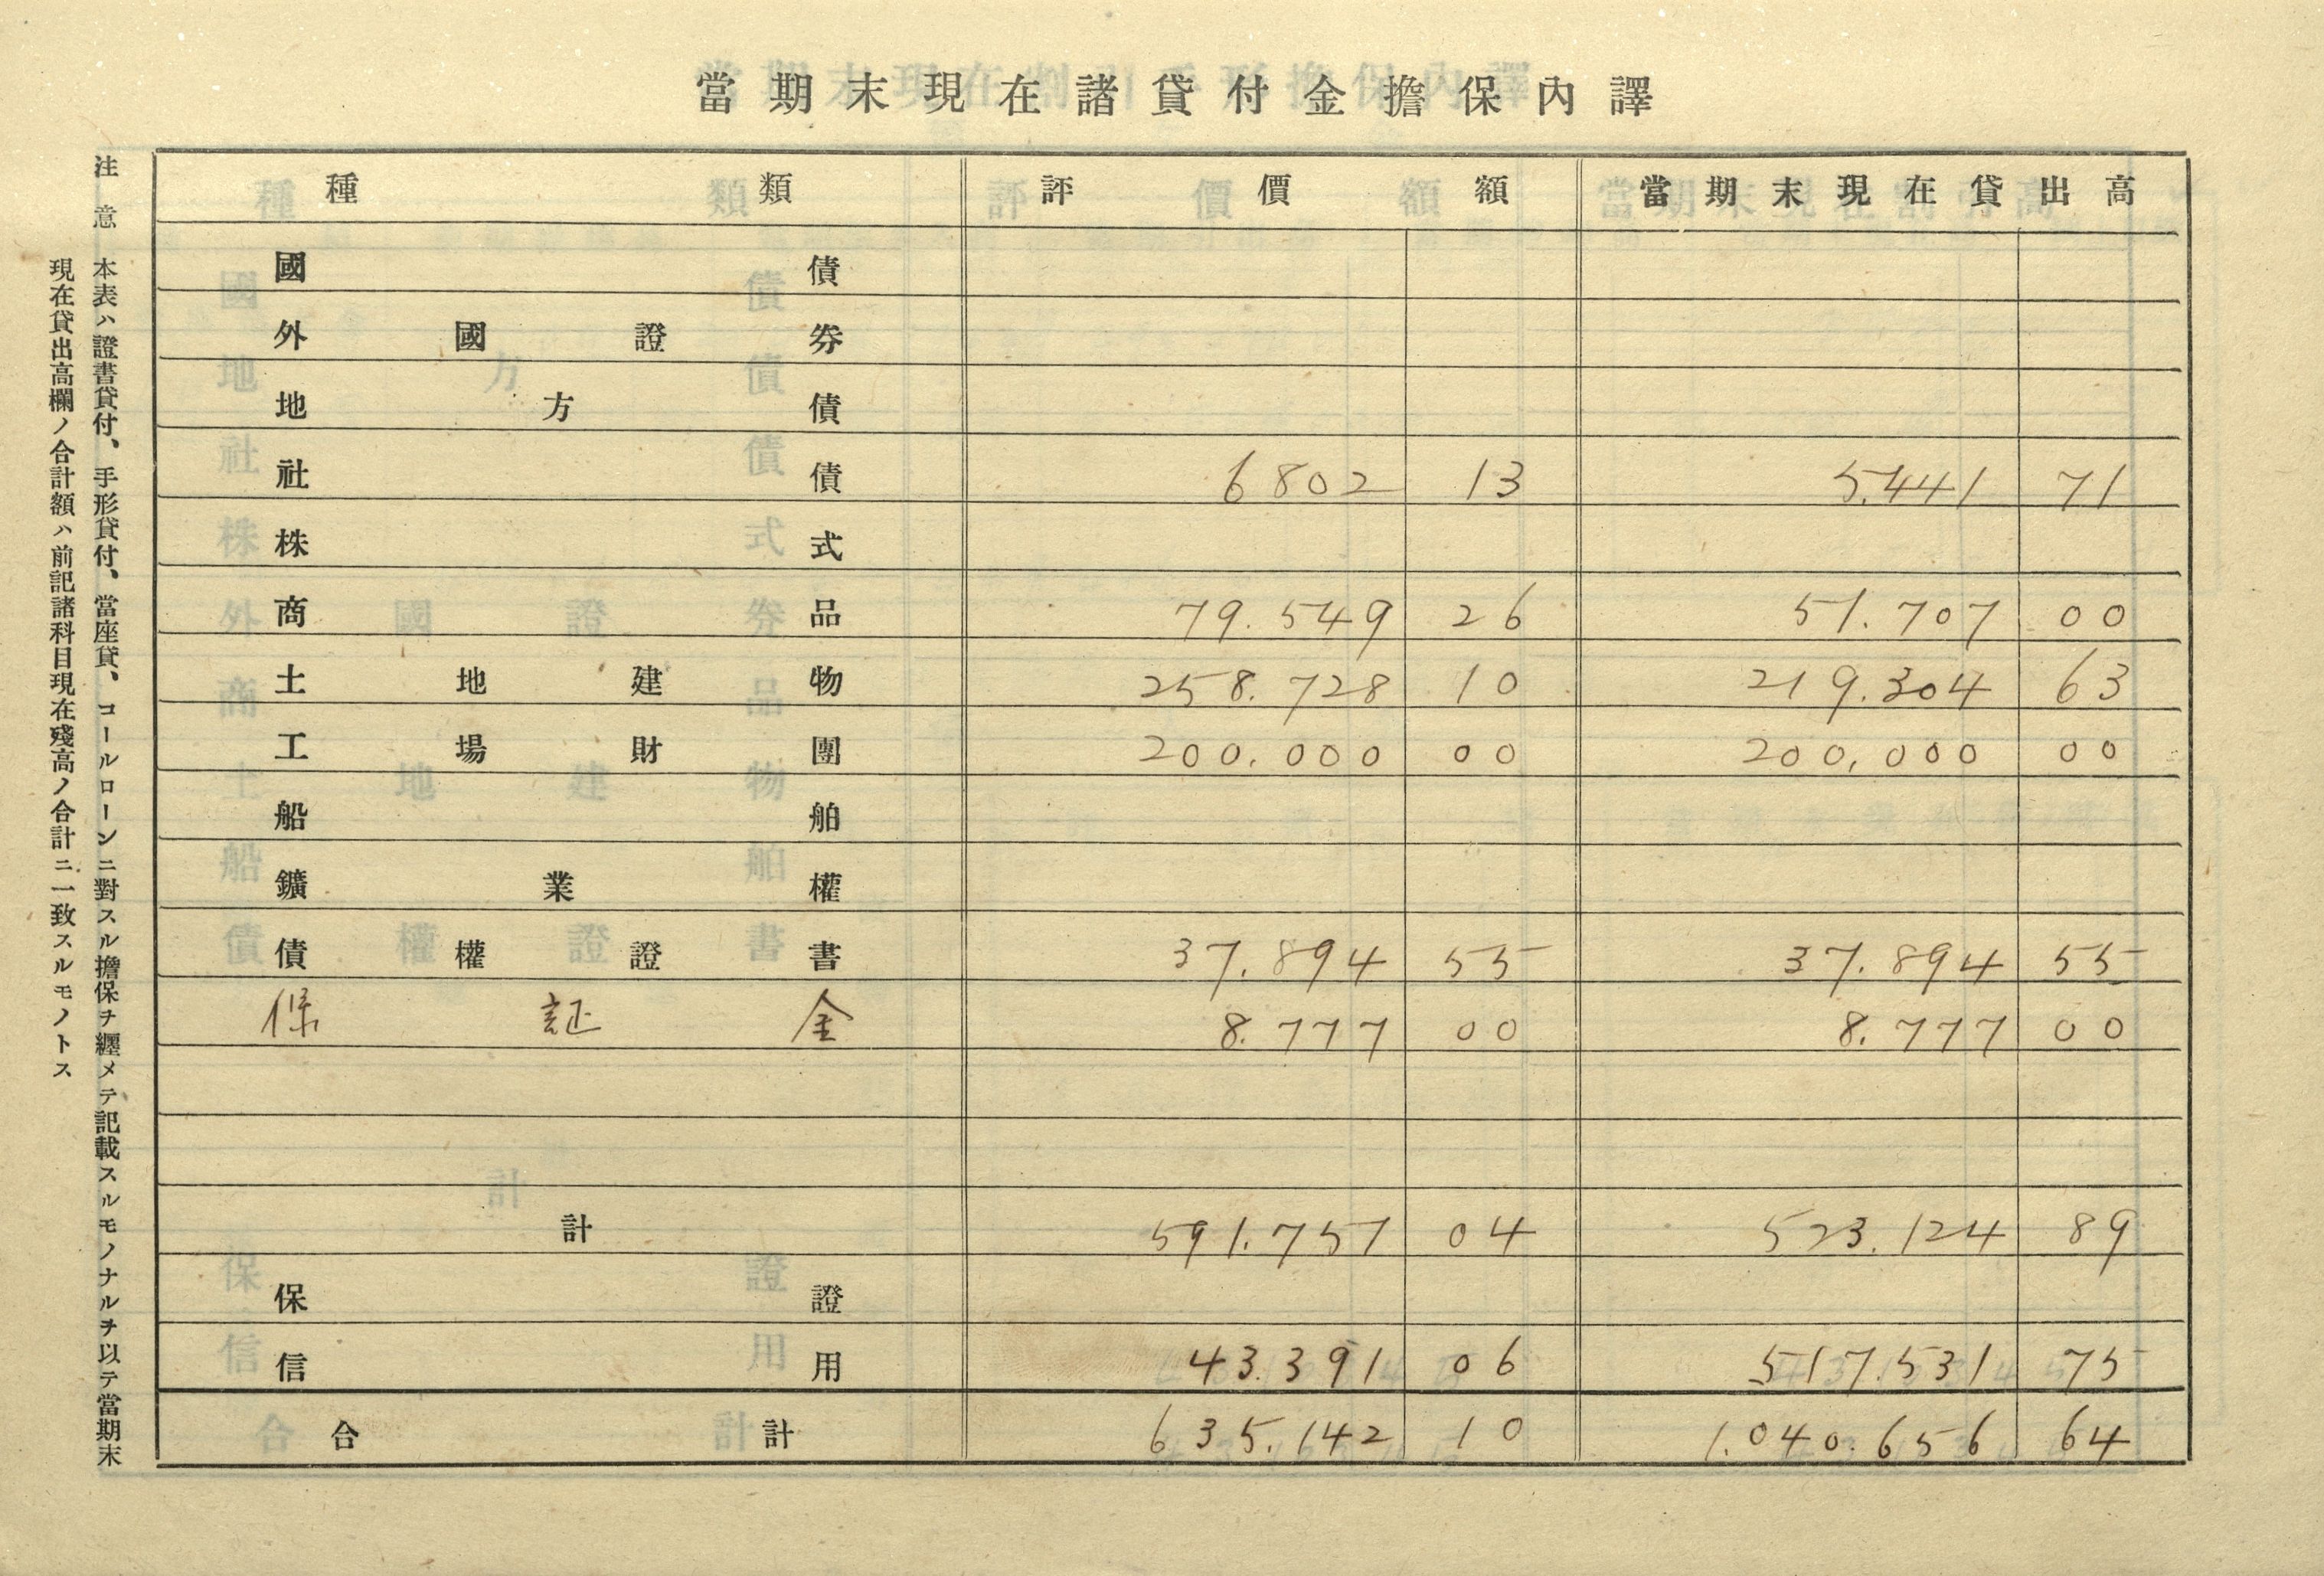 當期末現在諸貸付金擔保內譯
種類 評價額 當期末現在貸出高
國債
外國證券
地方債
社債 6802 13 5.441 71
株式
商品 79.549 26 51.707 00
土地建物 258.728 10 219.304 63
工場財團 200.000 00 200.000 00
船舶
鑛業權
債權證書 37.894 55 37.894 55
保証金 8.777 00 8.777 00
計 591.751 04 523.124 89
保證
信用 43.391 06 517.531 75
合計 635.142 10 1.040.656 64
注意 本表ハ證書貸付、手形貸付、當座貸、コールローンニ對スル擔保ヲ纒メテ記載スルモノナルヲ以テ當期末
現在貸出高欄ノ合計額ハ前記諸科目現在殘高ノ合計ニ一致スルモノトス